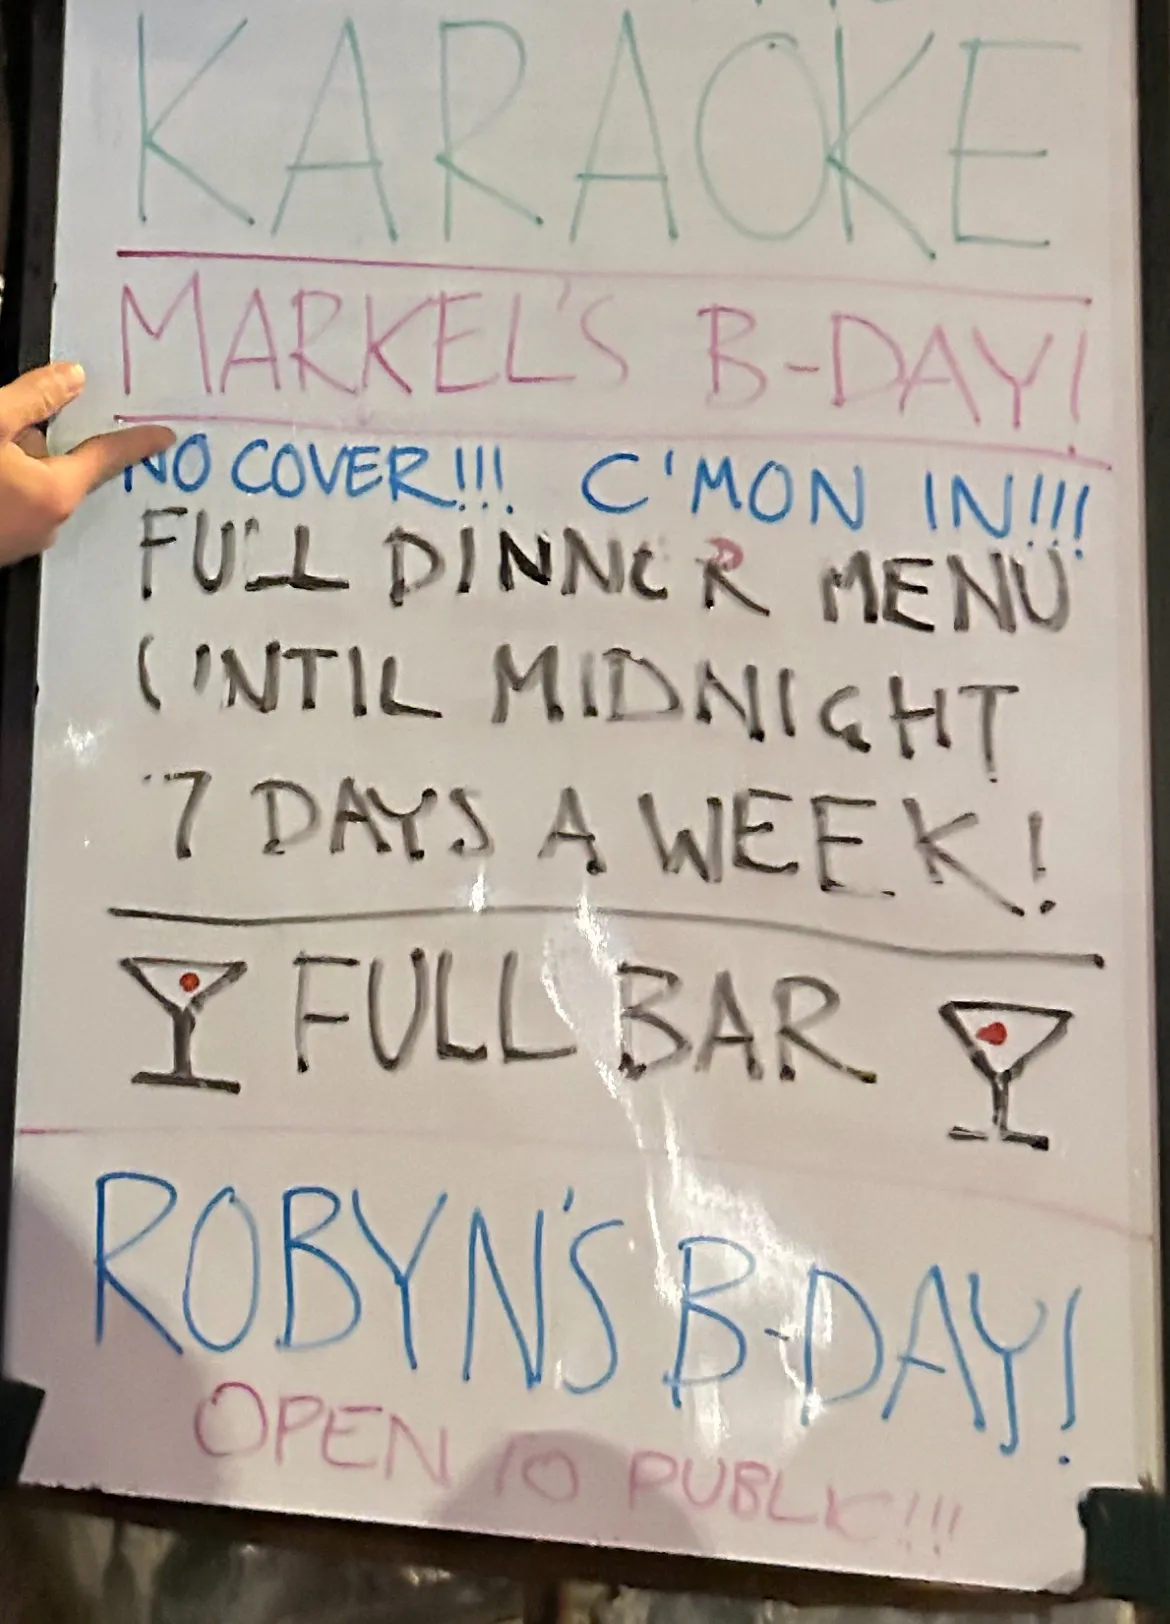 KARAOKE
MARKEL'S B-DAY!
NO COVER!!! C'MON IN!!!
FULL DINNER MENU
UNTIL MIDNIGHT
7 DAYS A WEEK!
FULL BAR
ROBYN'S B-DAY!
OPEN TO PUBLIC!!!